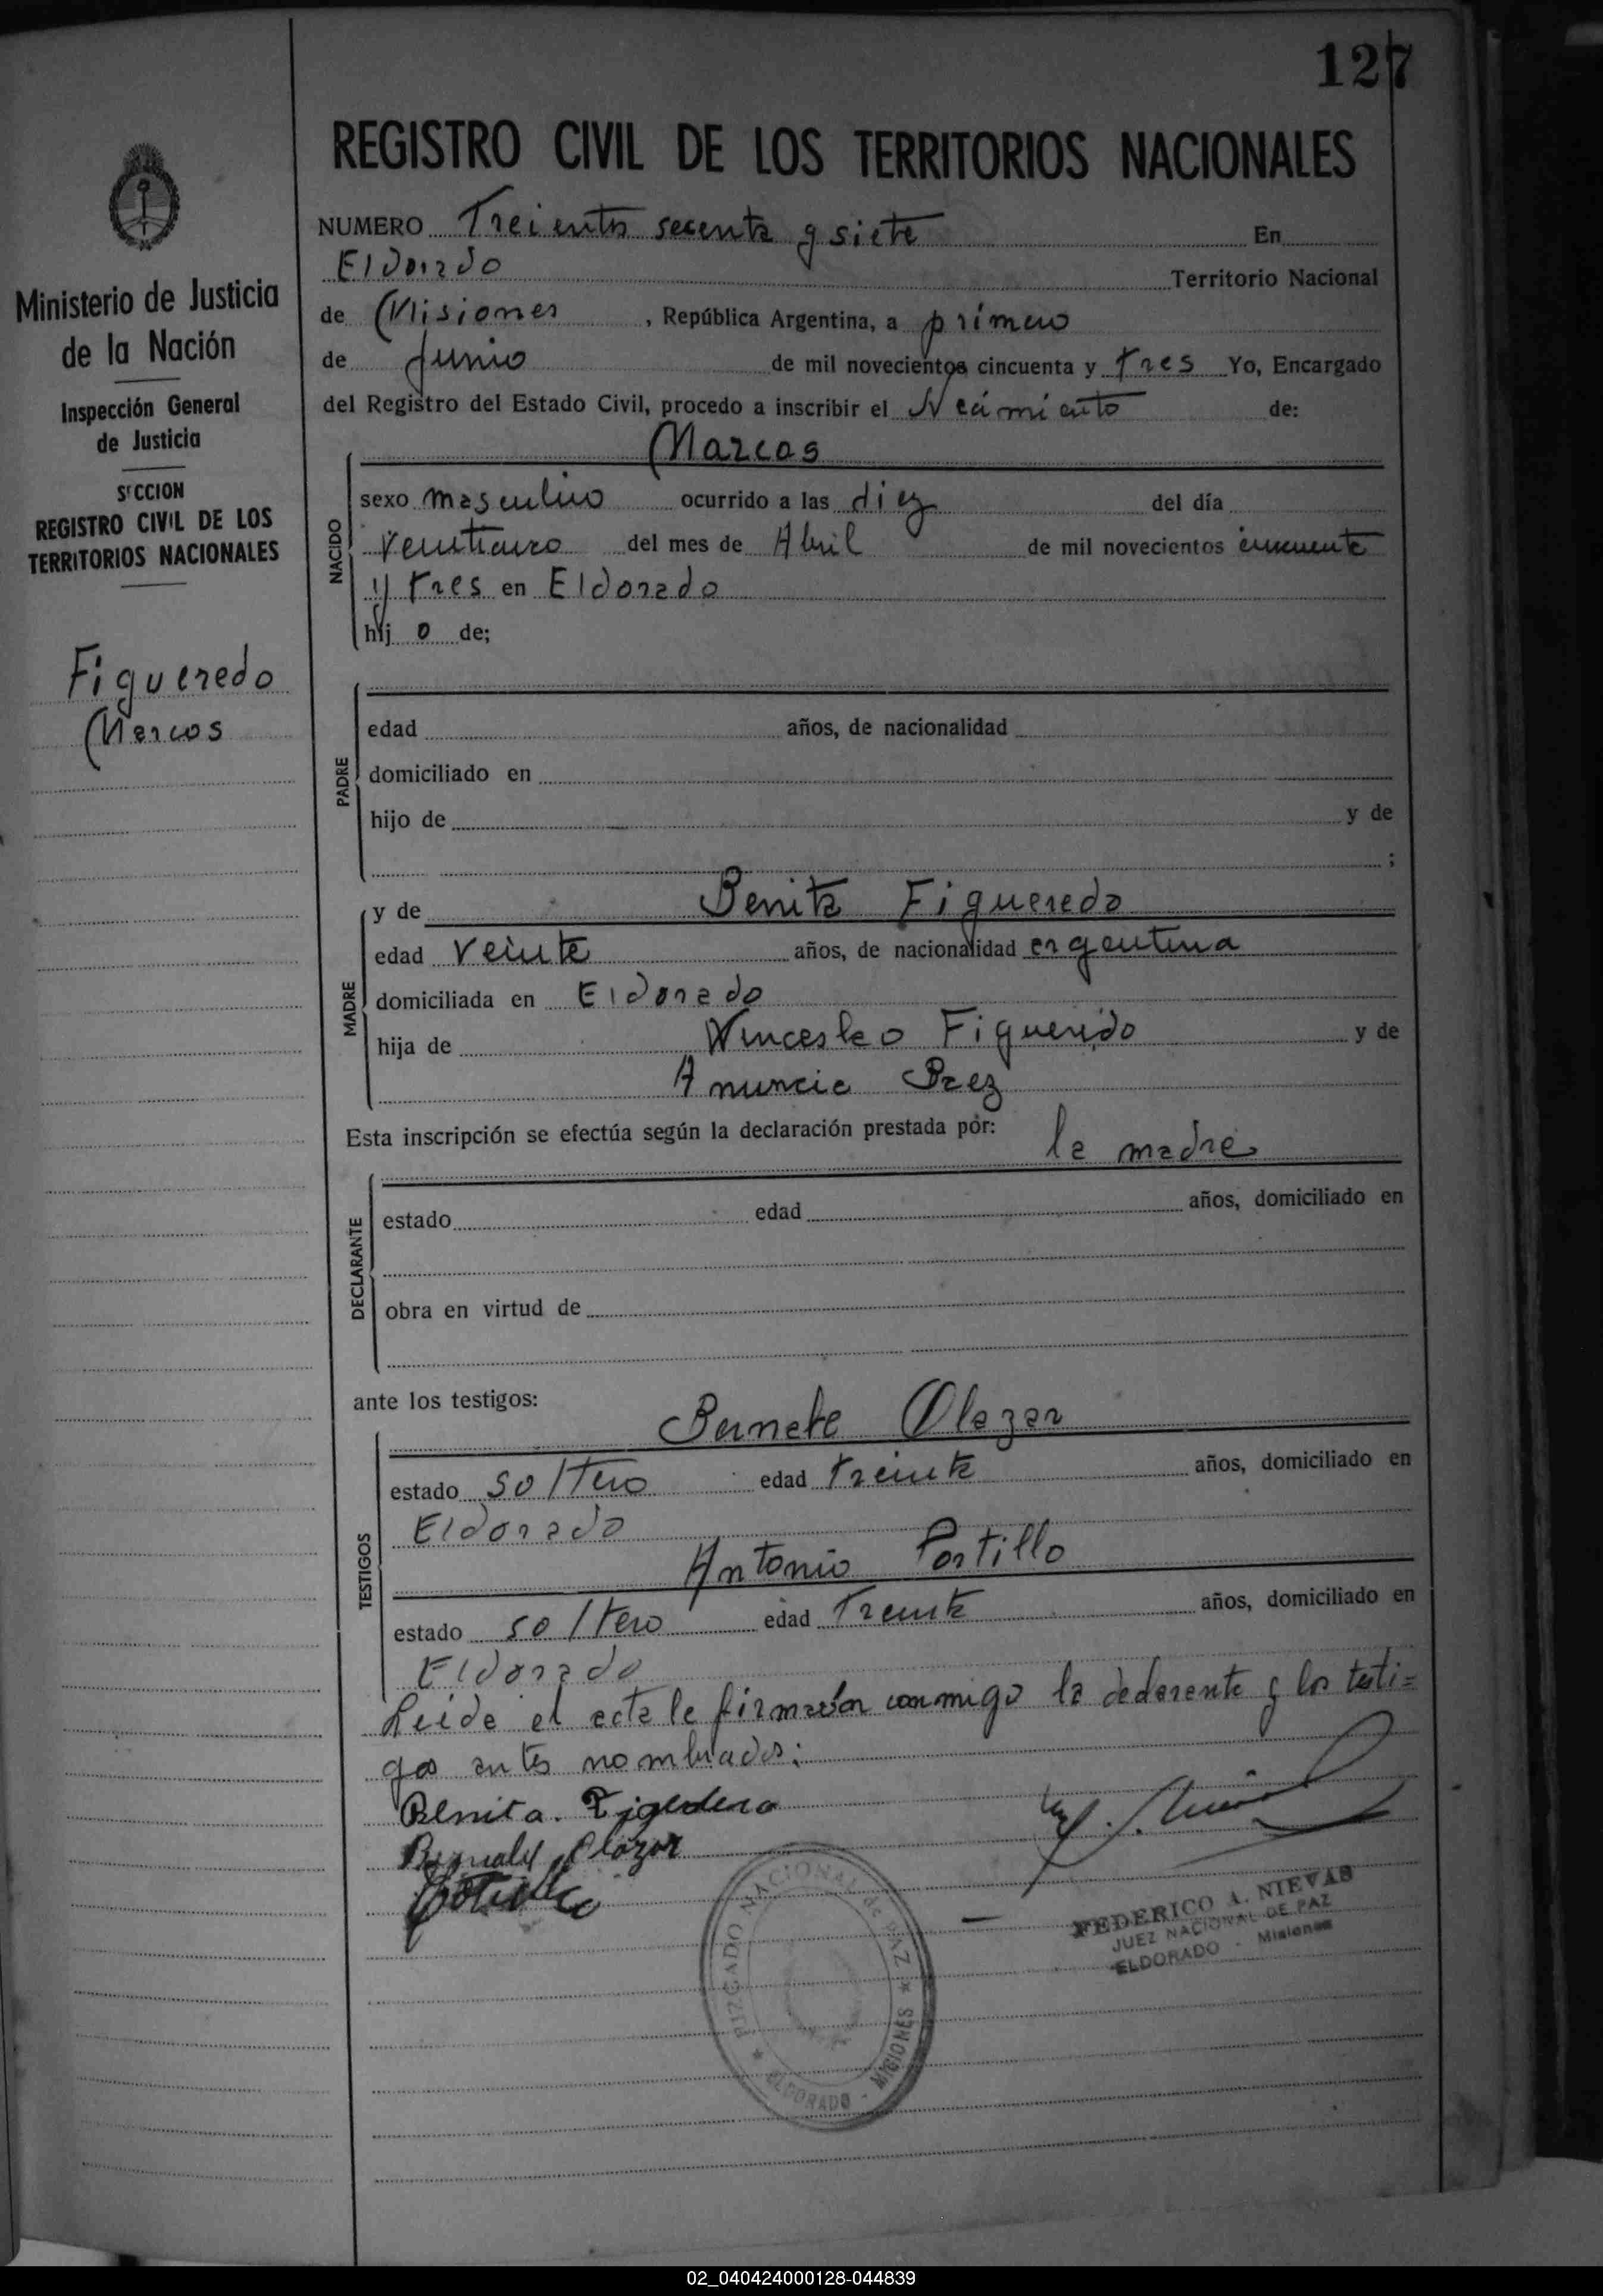 127
REGISTRO CIVIL DE LOS TERRITORIOS NACIONALES
Ministerio de Justicia
de la Nación
Inspección General
de Justicia
SECCION
REGISTRO CIVIL DE LOS
TERRITORIOS NACIONALES
Figueredo
Marcos
NUMERO Treciento secenta y siete En
Eldorado Territorio Nacional
de Misiones, República Argentina, a primero
de Junio de mil novecientos cincuenta y tres Yo, Encargado
del Registro del Estado Civil, procedo a inscribir el Nacimiento de:
Marcos
NACIDO
sexo masculino ocurrido a las diez del día
veinticinco del mes de Abril de mil novecientos cincuenta
y tres en Eldorado
hijo de;
PADRE
edad años, de nacionalidad
domiciliado en
hijo de y de
;
MADRE
y de Benita Figueredo
edad veinte años, de nacionalidad argentina
domiciliada en Eldorado
hija de Wincesleo Figueredo y de
Anuncia Baez
Esta inscripción se efectúa según la declaración prestada por:
la madre
DECLARANTE
estado edad años, domiciliado en
obra en virtud de
ante los testigos:
TESTIGOS
Olazar
estado soltero edad treinta años, domiciliado en
Eldorado
Antonio Portillo
estado soltero edad treinta años, domiciliado en
Eldorado
Leida el acta la firmaron conmigo la declarante y los testi=
gos antes nombrados:
Benita. Figedero
Olazar
FEDERICO A. NIEVAS
JUEZ NACIONAL DE PAZ
ELDORADO - Misiones
JUZGADO NACIONAL de PAZ
ELDORADO - MISIONES
02_040424000128-044839